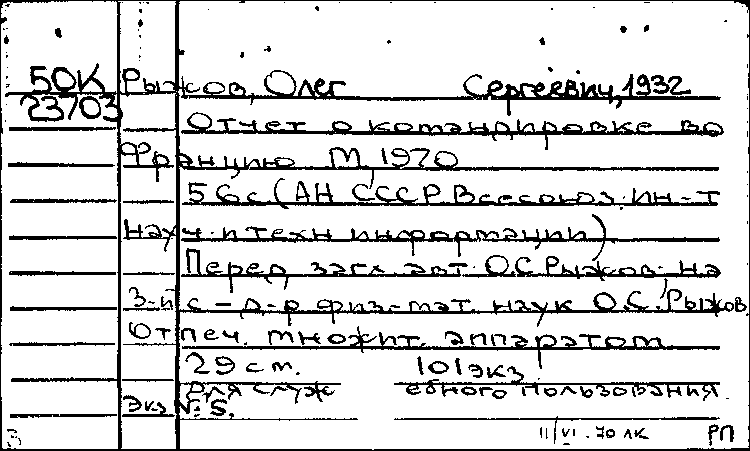 50К Рыжов, Олег Сергеевич, 1932
23703
Отчет о командировке во
Францию М, 1970
56с (АН СССР Всесоюз. ин-т
науч. и техн информации)
Перед загл. авт. О.С Рыжов. на
3-й с - д-р физ-мат. наук О.С. Рыжов
Отпеч. множит. аппаратом
29 см. 101 экз
Для служебного пользования.
Экз № 5.
11/VI. 70 ЛК РП
З